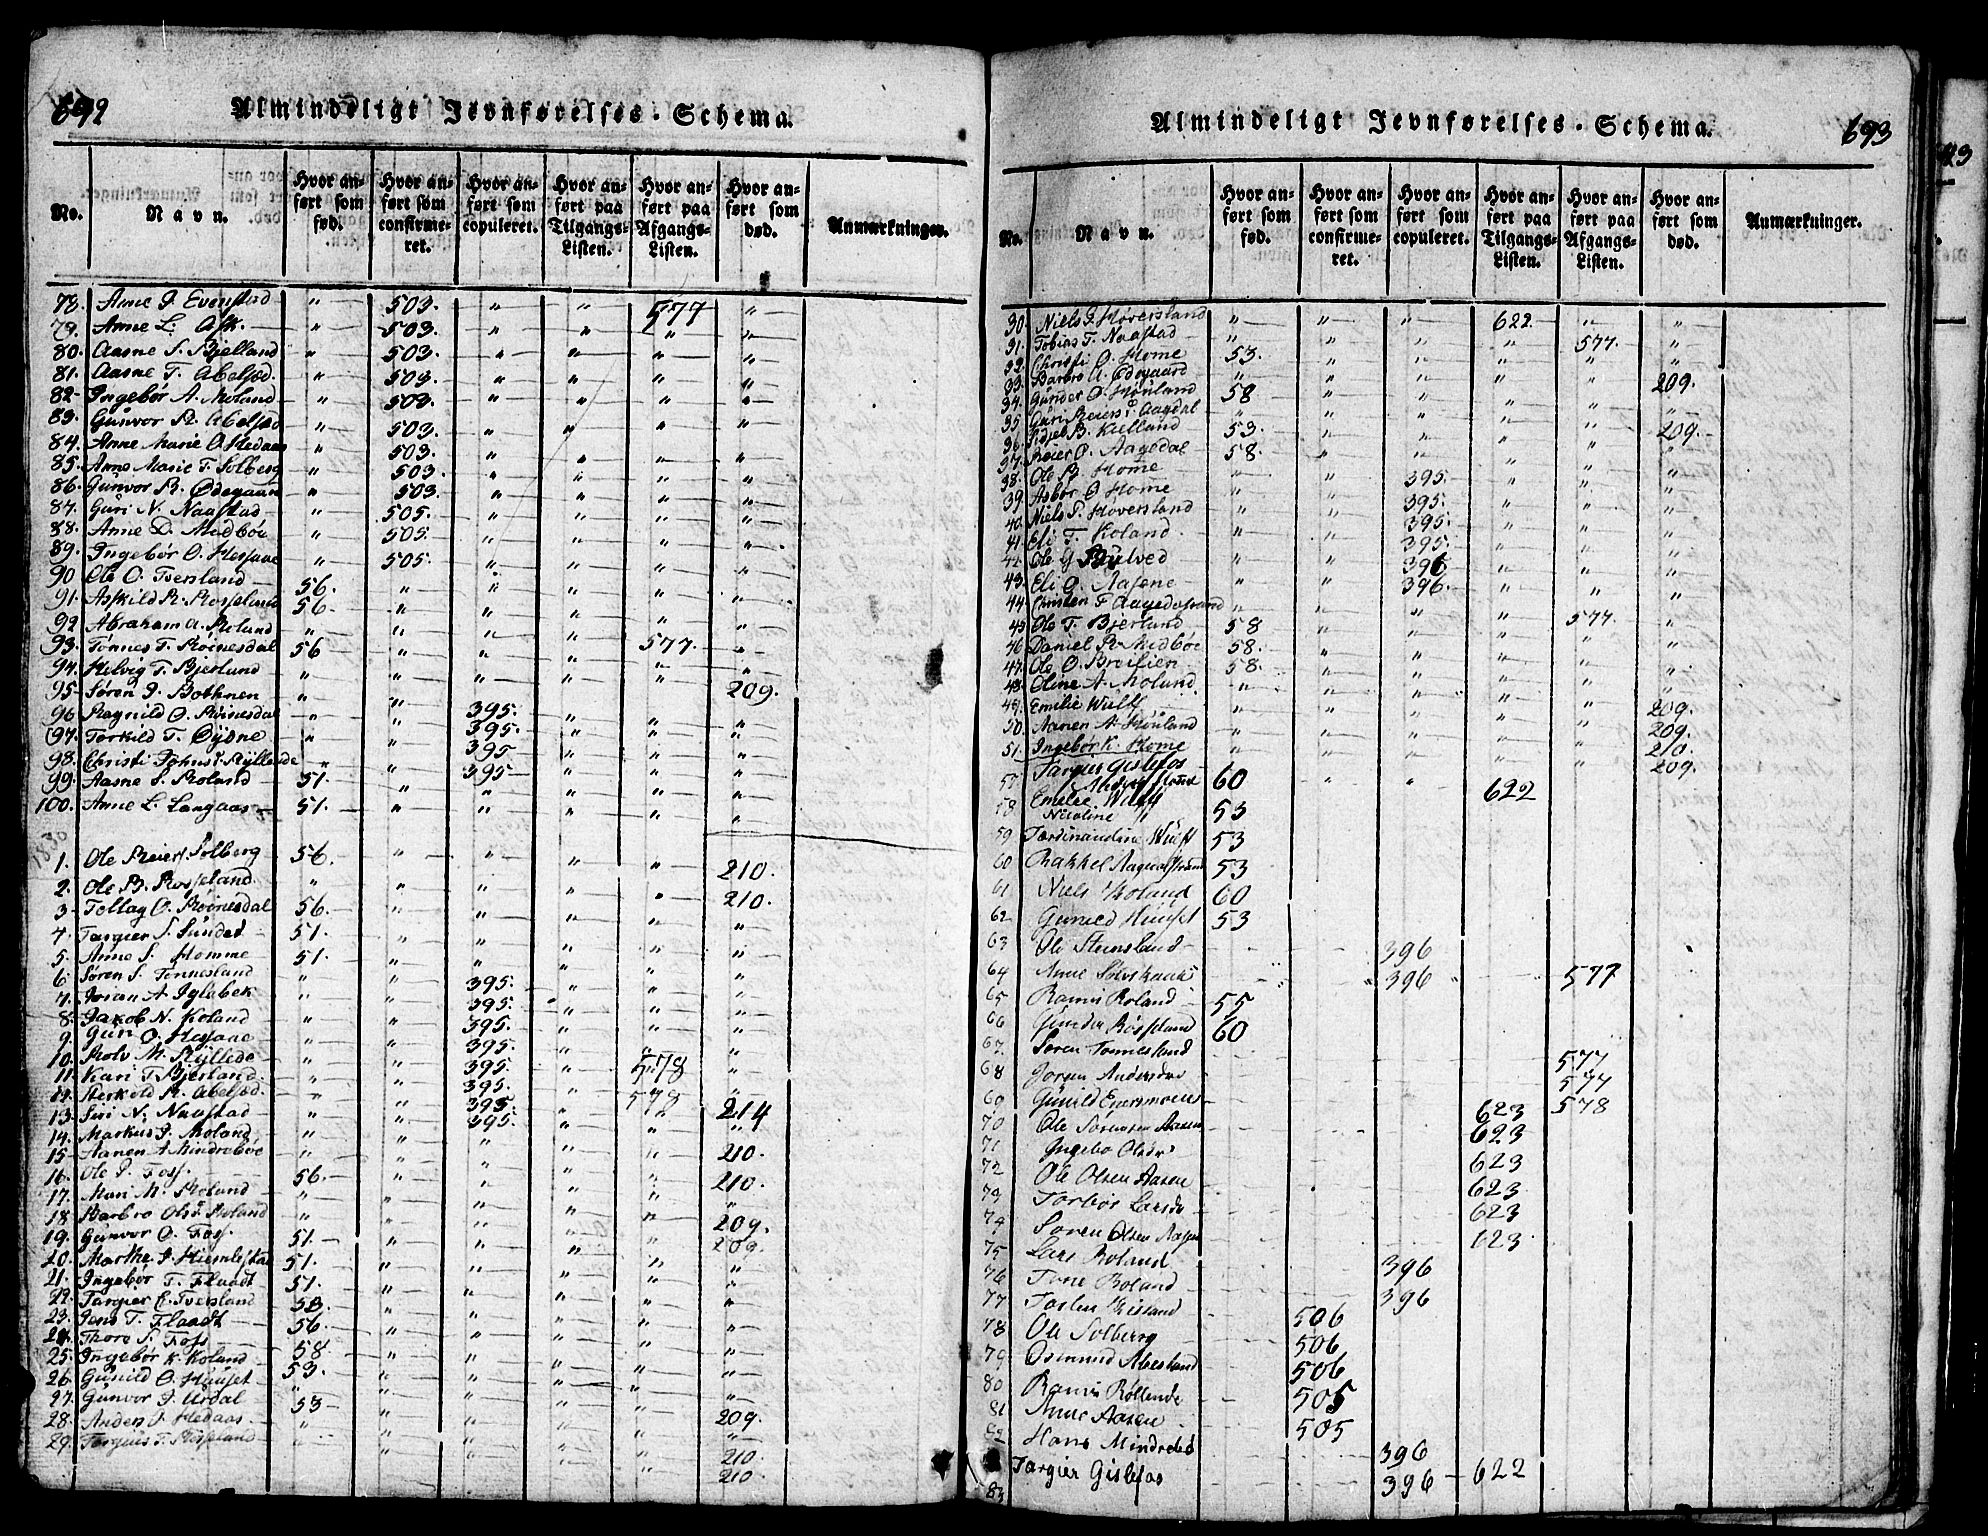 692 Almindeligt Jevnførelses-Schema.
No. Navn. Hvor anført som fød. Hvor anført som confirmeret. Hvor anført som copuleret. Hvor anført paa Tilgangs-Listen. Hvor anført paa Afgangs-Listen. Hvor anført som død. Anmærkninger.
78. Anne J. Evenstad " 503. " " 577 "
79. Anne L. Ask. " 503. " " " "
80. Aasne S. Bjelland " 503. " " " "
81. Aasne T. Abelsæd. " 503. " " " "
82. Ingebør A. Moland " 503. " " " "
83. Günvor R. Abelsæd " 503. " " " "
84. Anne Marie O. Hedaas " 503. " " " "
85. Anne Marie T. Solberg " 503. " " " "
86. Günvor R. Ødegaan " 503. " " " "
87. Güri N. Naastad " 505. " " " "
88. Anne D. Midbøe " 505. " " " "
89. Ingebør O. Hessaae " 505. " " " "
90 Ole O. Tversland 56. " " " " "
91. Asskild R. Rosseland 56. " " " " "
92 Abraham A. Roland " " " " " "
93. Tønnes T. Røinesdal 56 " " " 577. "
94. Helvig T. Bjerlund " " " " "
95. Søren J. Bothnen " " " " 209.
96 Ragnild O. Røinesdal " " 395. " " "
97. Torkild T. Øydne " " 395. " " "
98. Christi Johns: Ryllende " " 395 " " "
99. Aasne S. Roland 51. " 395 " " "
100. Anne L. Langaas 51. " " " " "
1830
1. Ole Reiers. Solberg 56. " " " " 210.
2. Ole B. Rosseland " " " " " 210.
3. Tellag O. Røinesdal 56. " " " " "
4. Targier S. Sündet 51. " " " " "
5. Anne S. Homme 51. " " " " "
6 Søren S. Tønnesland " " 395. " " "
7. Joran A. Iglebek " " 395. " " "
8. Jakob N. Roland " " 395. " " "
9. Güri O. Hessaae " " 395. " " "
10. Rolv M. Ryllede " " 395. " 578 "
11. Kari T. Bjerland " " 395. " " "
12. Sterkold R. Abelsæd " " 395 " 578 214
13. Siri N. Naastad " " 395. " " "
14. Markus J. Moland " " " " " 210.
15. Aanen A. Mindrebøe " " " " " "
16. Ole P. Foss. 56. " " " " 210.
17. Mari M. Roland " " " " " "
18 Barbro Ols: Roland " " " " " 209.
19. Günvor O. Foss. 51. " " " " 209.
20. Marthe J. Hiemlestad 51. " " " " "
21. Ingebor T. Flaadt 51. " " " " "
22. Targier E. Tversland 53. " " " " "
23. Jens T. Flaadt 56. " " " " "
24. Thore S. Foss " " " " " "
25. Ingebør K. Roland 58 " " " " "
26. Günild O. Hüuset 53. " " " " "
27. Günvor J. Urdal " " " " " "
28. Anders J. Hedaas 53 " " " " 209.
29. Targius T. Rosseland " " " " " "
210.
210.
Almindeligt Jevnførelses-Schema. 693
No. Navn. Hvor anført som fød. Hvor anført som confirmeret. Hvor anført som copuleret. Hvor anført paa Tilgangs-Listen. Hvor anført paa Afgangs-Listen. Hvor anført som død. Anmærkninger.
30. Niels G. Hoversland " " " 622. " "
31. Tobias T. Naastad " " " " 577. "
32. Christi O. Home 53. " " " " "
33. Barbro A. Ødegaard " " " " " 209.
34. Günder O. Hønland 58 " " " " "
35 Güri Reiers: Aagdal " " " " " "
36. Sidsel B. Kielland 53. " " " " 209.
37. Reier O. Aagedal 58. " " " " "
38. Ole B. Home " " 395. " " "
39 Asbør O. Home " " 395. " " "
40. Niels P. Hoversland " " 395. " " "
41. Eli T. Roland " " 395. " " "
42. Ole G. " " 396 " " "
43. Eli O. Aasene " " 396. " " "
44. Christen F. " " " " 577. "
45. Ole T. Bjerland 58 " " " " "
46 Daniel R. Midbøe 58. " " " " "
47. Ole O. Breilien 58. " " " " "
48. Oline A. Moland " " " " " "
49. Emilie Wulff " " " " " 209.
50. Aanen A. Hønland " " " " " 209.
51. Ingebør K. Home " " " " " 210.
209.
57 Targier Gislefos Anders Home 60 " " 622
58 Emelie Wulff Nicoline " 53
59 Ferdinandine Wulff 53
60 Rakkel 53
61 Niels Roland 60
62 Gunild Hüuset 53
63 Ole Stensland 396
64 Anne 396 577
65 Ramis Roland 55
66 Günder Røsseland 60
67 Søren Tonnesland 577
68 Joren Andersdtr 577
69 Günild 623 578
70 Ole Sørensen Aasen 623
71 Ingebo Olsdr 623
72 Ole Olsen Aasen 623
73 Torbør Larsdr 623
74 Soren Olsen Aasen 623
75 Lars Roland 396
76 Tone Roland 396
77 506
78 Ole Solberg 506
79 Osmund 506
80 Ramis Røllende 505
81 Anne Aasen 505
82 Hans Mindrebø 396
83 Targier Gislefos 396 622